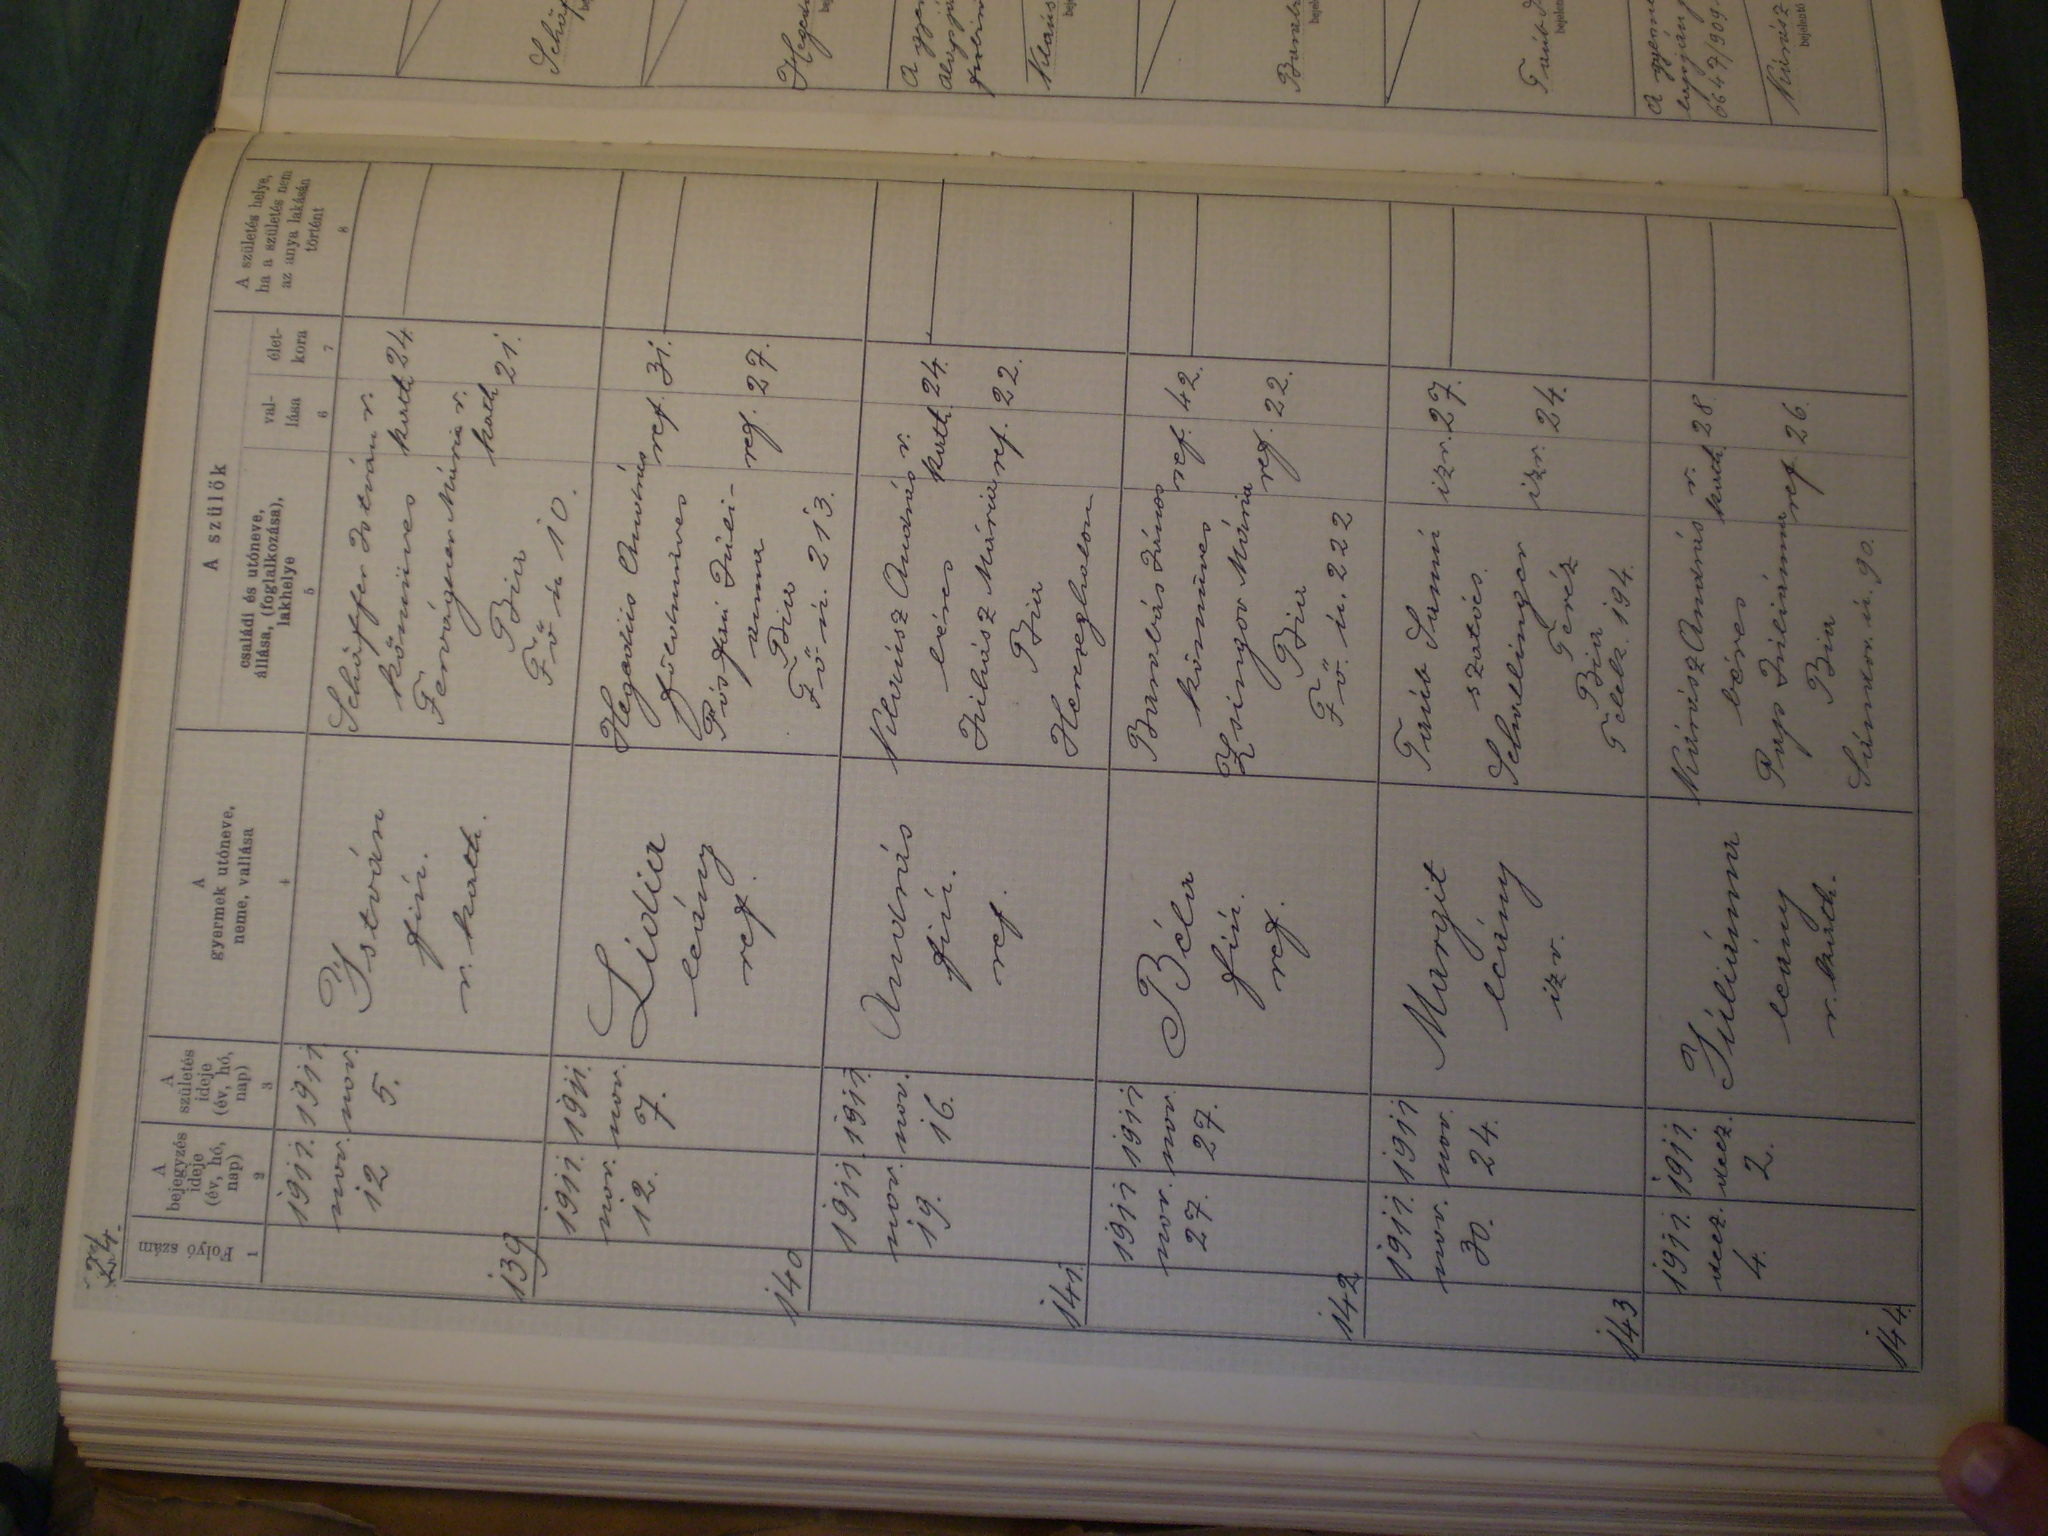 24.
Folyó szám
1
A
bejegyzés
ideje
(év, hó,
nap)
2
A
születés
ideje
(év, hó,
nap)
3
A
gyermek utóneve,
neme, vallása
4
A szülők
családi és utóneve,
állása, (foglalkozása),
lakhelye
5
val-
lása
6
élet-
kora
7
A születés helye,
ha a születés nem
az anya lakásán
történt
8
139
1911.
nov.
12
1911.
nov.
5.
István
fiú.
r. kath.
Schäffer István r.
kőmüves kath. 24.
Mária r.
kath. 21.
Bia
Fő ú 10.
140
1911.
nov.
12.
1911.
nov.
7.
Lidia
leány
ref.
Hegedüs András ref. 31.
földmüves
Juli-
anna ref. 27.
Bia
Fő ú. 213.
141.
1911.
nov.
19.
1911.
nov.
16.
András
fiú.
ref.
Klausz András r.
béres kath. 24.
Juhász Mária ref. 22.
Bia
Herczeghalom
142
1911
nov.
27.
1911
nov.
27.
Béla
fiú.
ref.
Barabás János ref. 42.
kőmüves
Zsingor Mária ref. 22.
Bia
Fő. ú. 222
143
1911.
nov.
30.
1911
nov.
24.
Margit
leány
izr.
Taub Samu izr. 27.
szatócs.
Schallinger
Teréz izr. 24.
Bia
Telek. 194.
144.
1911.
decz.
4.
1911.
decz.
2.
Juliánna
leány
r. kath.
Kárász András r.
béres kath. 28.
Pap Juliánna ref. 26.
Bia
Sándor. ú. 90.
A
6647/909.
Kárász
bejelentő